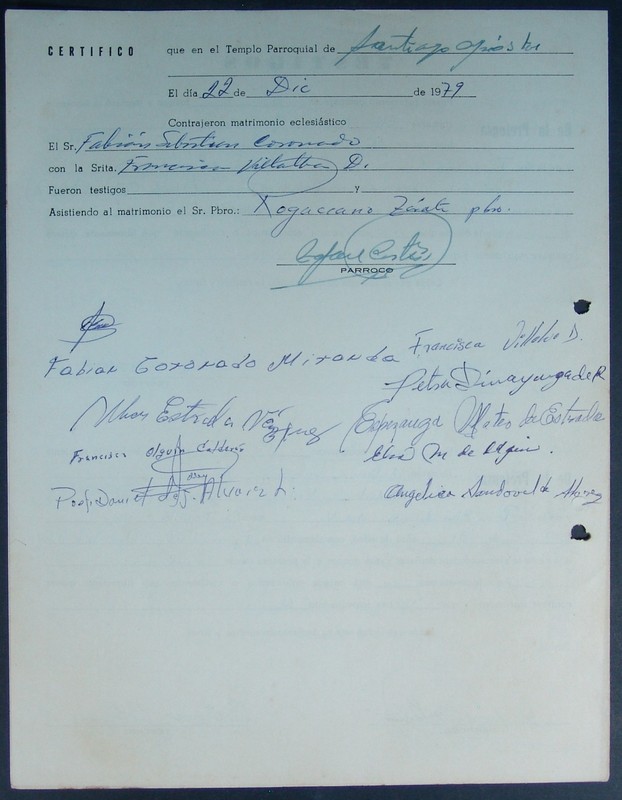 CERTIFICO que en el Templo Parroquial de Santiago Apóstol
El día 22 de Dic de 1979
Contrajeron matrimonio eclesiástico
El Sr. Fabián Coronado
con la Srita. Francisca Villalba D.
Fueron testigos y
Asistiendo al matrimonio el Sr. Pbro.: Rogaciano Zárate pbro.
PARROCO
Fabian Coronado Miranda Francisca Villalva D.
Petra
Estrada Vázquez Esperanza Mateo de Estrada
Francisco Olguín Calderón M. de Olguin.
Profr. Daniel Alvarez L. Angelica Sandoval de Alvarez